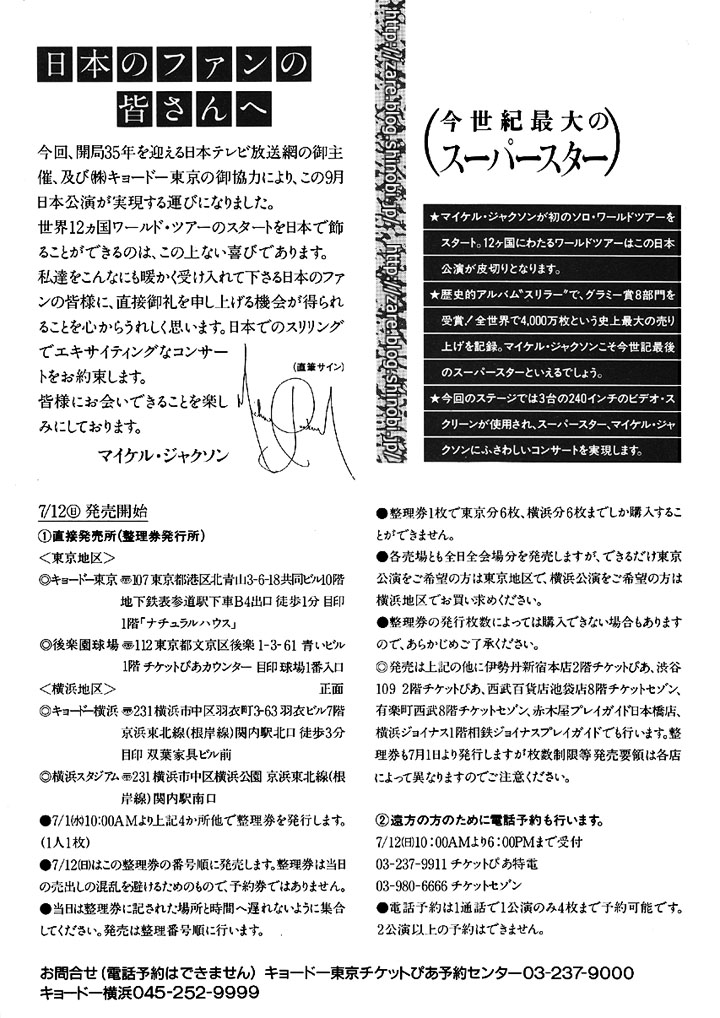 日本のファンの
皆さんへ
今回、開局35年を迎える日本テレビ放送網の御主
催、及び㈱キョードー東京の御協力により、この9月
日本公演が実現する運びになりました。
世界12ヵ国ワールド・ツアーのスタートを日本で飾
ることができるのは、この上ない喜びであります。
私達をこんなにも暖かく受け入れて下さる日本のファ
ンの皆様に、直接御礼を申し上げる機会が得られ
ることを心からうれしく思います。日本でのスリリング
でエキサイティングなコンサー
トをお約束します。
皆様にお会いできることを楽し
みにしております。
マイケル・ジャクソン
(直筆サイン)
http://zare.blog.shinobi.jp/
http://zare.blog.shinobi.jp/
(今世紀最大の
スーパースター)
★マイケル・ジャクソンが初のソロ・ワールドツアーを
スタート。12ヶ国にわたるワールドツアーはこの日本
公演が皮切りとなります。
★歴史的アルバム“スリラー”で、グラミー賞8部門を
受賞!全世界で4,000万枚という史上最大の売り
上げを記録。マイケル・ジャクソンこそ今世紀最後
のスーパースターといえるでしょう。
★今回のステージでは3台の240インチのビデオ・ス
クリーンが使用され、スーパースター、マイケル・ジャ
クソンにふさわしいコンサートを実現します。
7/12㊐ 発売開始
①直接発売所(整理券発行所)
<東京地区>
◎キョードー東京 〠107 東京都港区北青山3-6-18共同ビル10階
地下鉄表参道駅下車B4出口 徒歩1分 目印
1階「ナチュラルハウス」
◎後楽園球場 〠112 東京都文京区後楽1-3-61 青いビル
1階 チケットぴあカウンター 目印 球場1番入口
<横浜地区> 正面
◎キョードー横浜 〠231 横浜市中区羽衣町3-63 羽衣ビル7階
京浜東北線(根岸線)関内駅北口 徒歩3分
目印 双葉家具ビル前
◎横浜スタジアム 〠231 横浜市中区横浜公園 京浜東北線(根
岸線)関内駅南口
●7/1㈬10:00AMより上記4か所他で整理券を発行します。
(1人1枚)
●7/12(日)はこの整理券の番号順に発売します。整理券は当日
の売出しの混乱を避けるためのもので、予約券ではありません。
●当日は整理券に記された場所と時間へ遅れないように集合
してください。発売は整理番号順に行います。
●整理券1枚で東京分6枚、横浜分6枚までしか購入するこ
とができません。
●各売場とも全日全会場分を発売しますが、できるだけ東京
公演をご希望の方は東京地区で、横浜公演をご希望の方は
横浜地区でお買い求めください。
●整理券の発行枚数によっては購入できない場合もあります
ので、あらかじめご了承ください。
◎発売は上記の他に伊勢丹新宿本店2階チケットぴあ、渋谷
109 2階チケットぴあ、西武百貨店池袋店8階チケットセゾン、
有楽町西武8階チケットセゾン、赤木屋プレイガイド日本橋店、
横浜ジョイナス1階相鉄ジョイナスプレイガイドでも行います。整
理券も7月1日より発行しますが枚数制限等発売要領は各店
によって異なりますのでご注意ください。
②遠方の方のために電話予約も行います。
7/12(日)10:00AMより6:00PMまで受付
03-237-9911 チケットぴあ特電
03-980-6666 チケットセゾン
●電話予約は1通話で1公演のみ4枚まで予約可能です。
2公演以上の予約はできません。
お問合せ(電話予約はできません) キョードー東京チケットぴあ予約センター03-237-9000
キョードー横浜045-252-9999